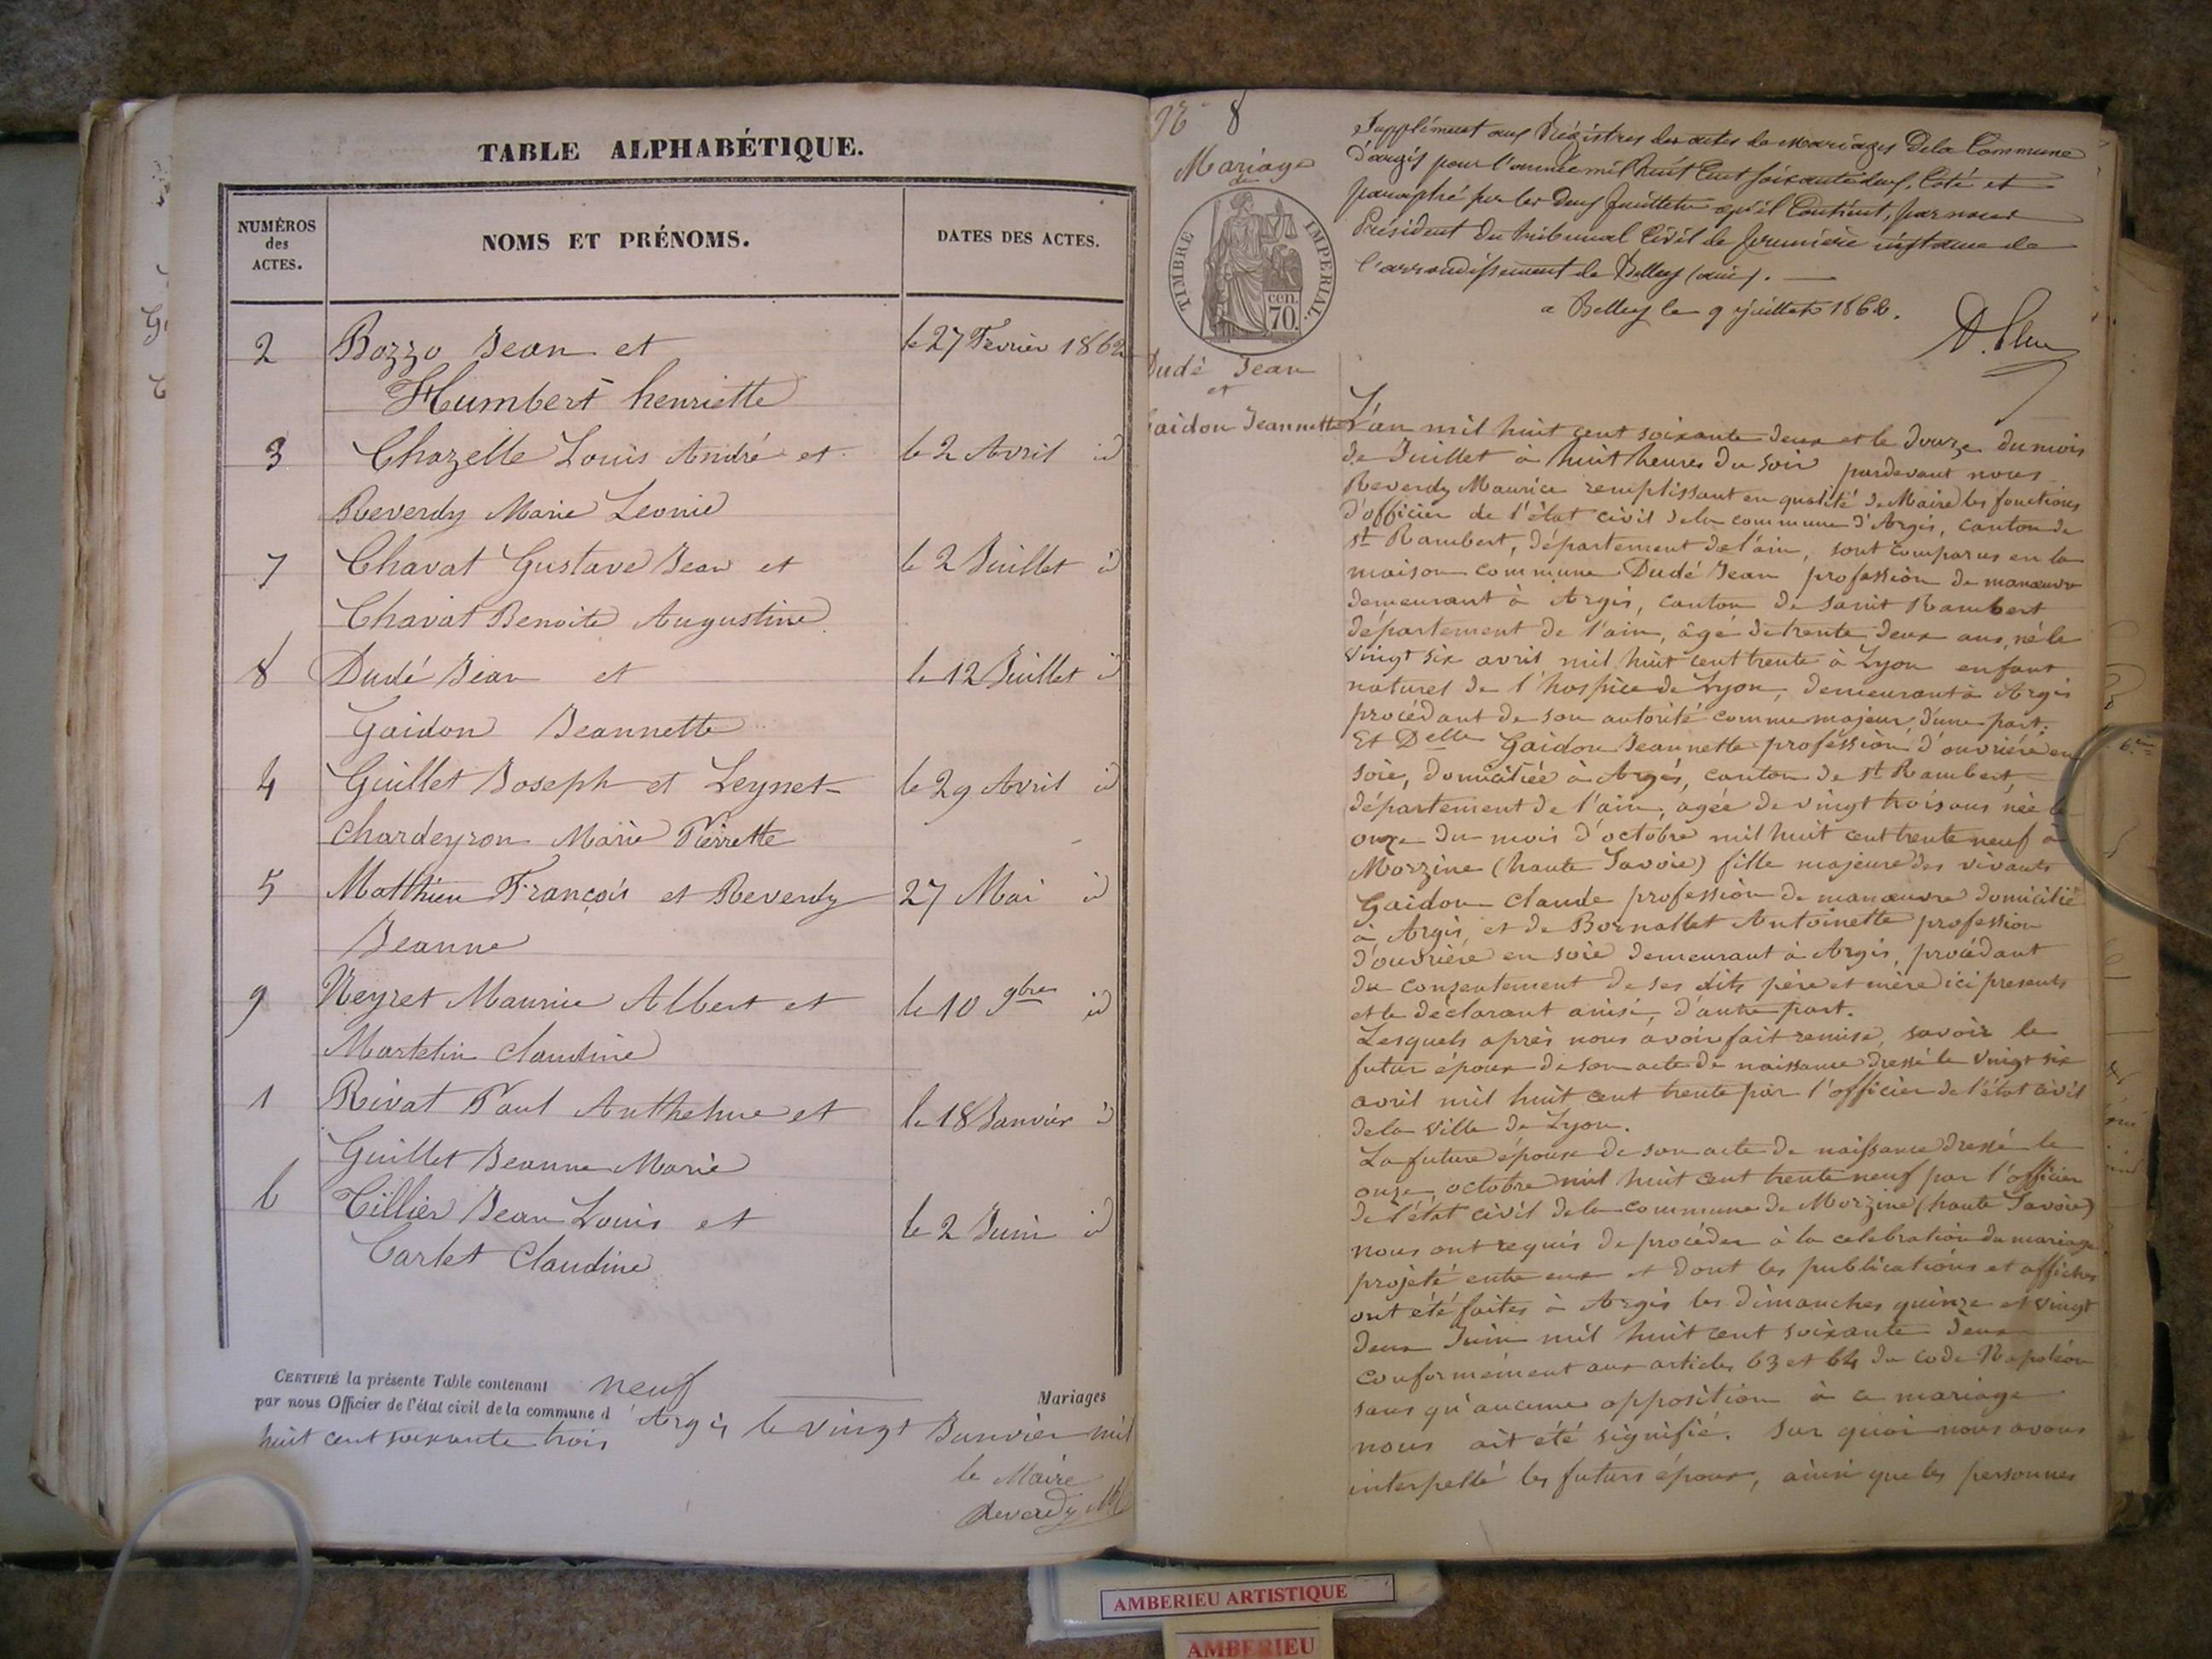 TABLE ALPHABÉTIQUE.
NUMÉROS
des
ACTES.
NOMS ET PRÉNOMS.
DATES DES ACTES.
2 Bozzo Jean et le 27 Fevrier 1862
Humbert henriette
3 Chazelle Louis André et le 2 Avril id
Reverdy Marie Leonie
7 Chavat Gustave Jean et le 2 Juillet id
Chavat Benoite Augustine
8 Dudé Jean et le 12 Juillet id
Gaidon Jeannette
4 Guillet Joseph et Leynet- le 29 Avril id
chardeyron Marie Pierrette
5 Matthieu François et Reverdy 27 Mai id
Jeanne
9 Neyret Maurice Albert et le 10 9bre id
Martelin claudine
1 Rivat Paul Anthelme et le 18 Janvier id
Guillet Jeanne Marie
6 Tillier Jean Louis et le 2 Juin id
Carlet Claudine
CERTIFIÉ la présente Table contenant neuf Mariages
par nous Officier de l'état civil de la commune d'Argis le vingt Janvier mil
huit cent soixante trois
le Maire
Reverdy M
No 8
Mariage
de
TIMBRE IMPERIAL.
cen.
70.
Dudé Jean
et
Gaidon Jeannette
Supplément aux Régistres des actes de Mariages de la Commune
d'argis pour l'année mil huit Cent soixante deux, Coté et
paraphé par les deux feuillets qu'il Contient, par nous
Président du tribunal Civil de première instance de
l'arrondissement de Belley (ain). —
a Belley le 9 juillet 1862.
L'an mil huit cent soixante deux et le douze du mois
de Juillet à huit heures du soir pardevant nous
Reverdy Maurice remplissant en qualité de Maire les fonctions
d'officier de l'état civil de la commune d'Argis, canton de
st Rambert, département de l'ain, sont comparus en la
maison commune Dudé Jean profession de manœuvre
demeurant à Argis, canton de saint Rambert
département de l'ain, âgé de trente deux ans, né le
vingt six avril mil huit cent trente à Lyon enfant
naturel de l'hospice de Lyon, demeurant à Argis
procédant de son autorité comme majeur d'une part.
Et Delle Gaidon Jeannette profession d'ouvrière en
soie, domiciliée à Argis, canton de st Rambert,
département de l'ain, agée de vingt trois ans née le
onze du mois d'octobre mil huit cent trente neuf à
Morzine (haute Savoie) fille majeure des vivants
Gaidon claude profession de manœuvre domicilié
à Argis, et de Bornallet Antoinette profession
d'ouvrière en soie demeurant à Argis, procédant
du consentement de ses dits père et mère ici presents
et le déclarant ainsi, d'autre part.
Lesquels après nous avoir fait remise, savoir le
futur époux de son acte de naissance dressé le vingt six
avril mil huit cent trente par l'officier de l'état civil
de la ville de Lyon.
La future épouse de son acte de naissance dressé le
onze octobre mil huit cent trente neuf par l'officier
de l'état civil de la commune de Morzine (haute Savoie)
nous ont requis de procéder à la celebration du mariage
projeté entre eux et dont les publications et affiches
ont été faites à Argis les dimanches quinze et vingt
deux Juin mil huit cent soixante deux
conformément aux articles 63 et 64 du code Napoléon
sans qu'aucune opposition à ce mariage
nous ait été signifié. Sur quoi nous avons
interpellé les futurs époux, ainsi que les personnes
AMBERIEU ARTISTIQUE
AMBERIEU